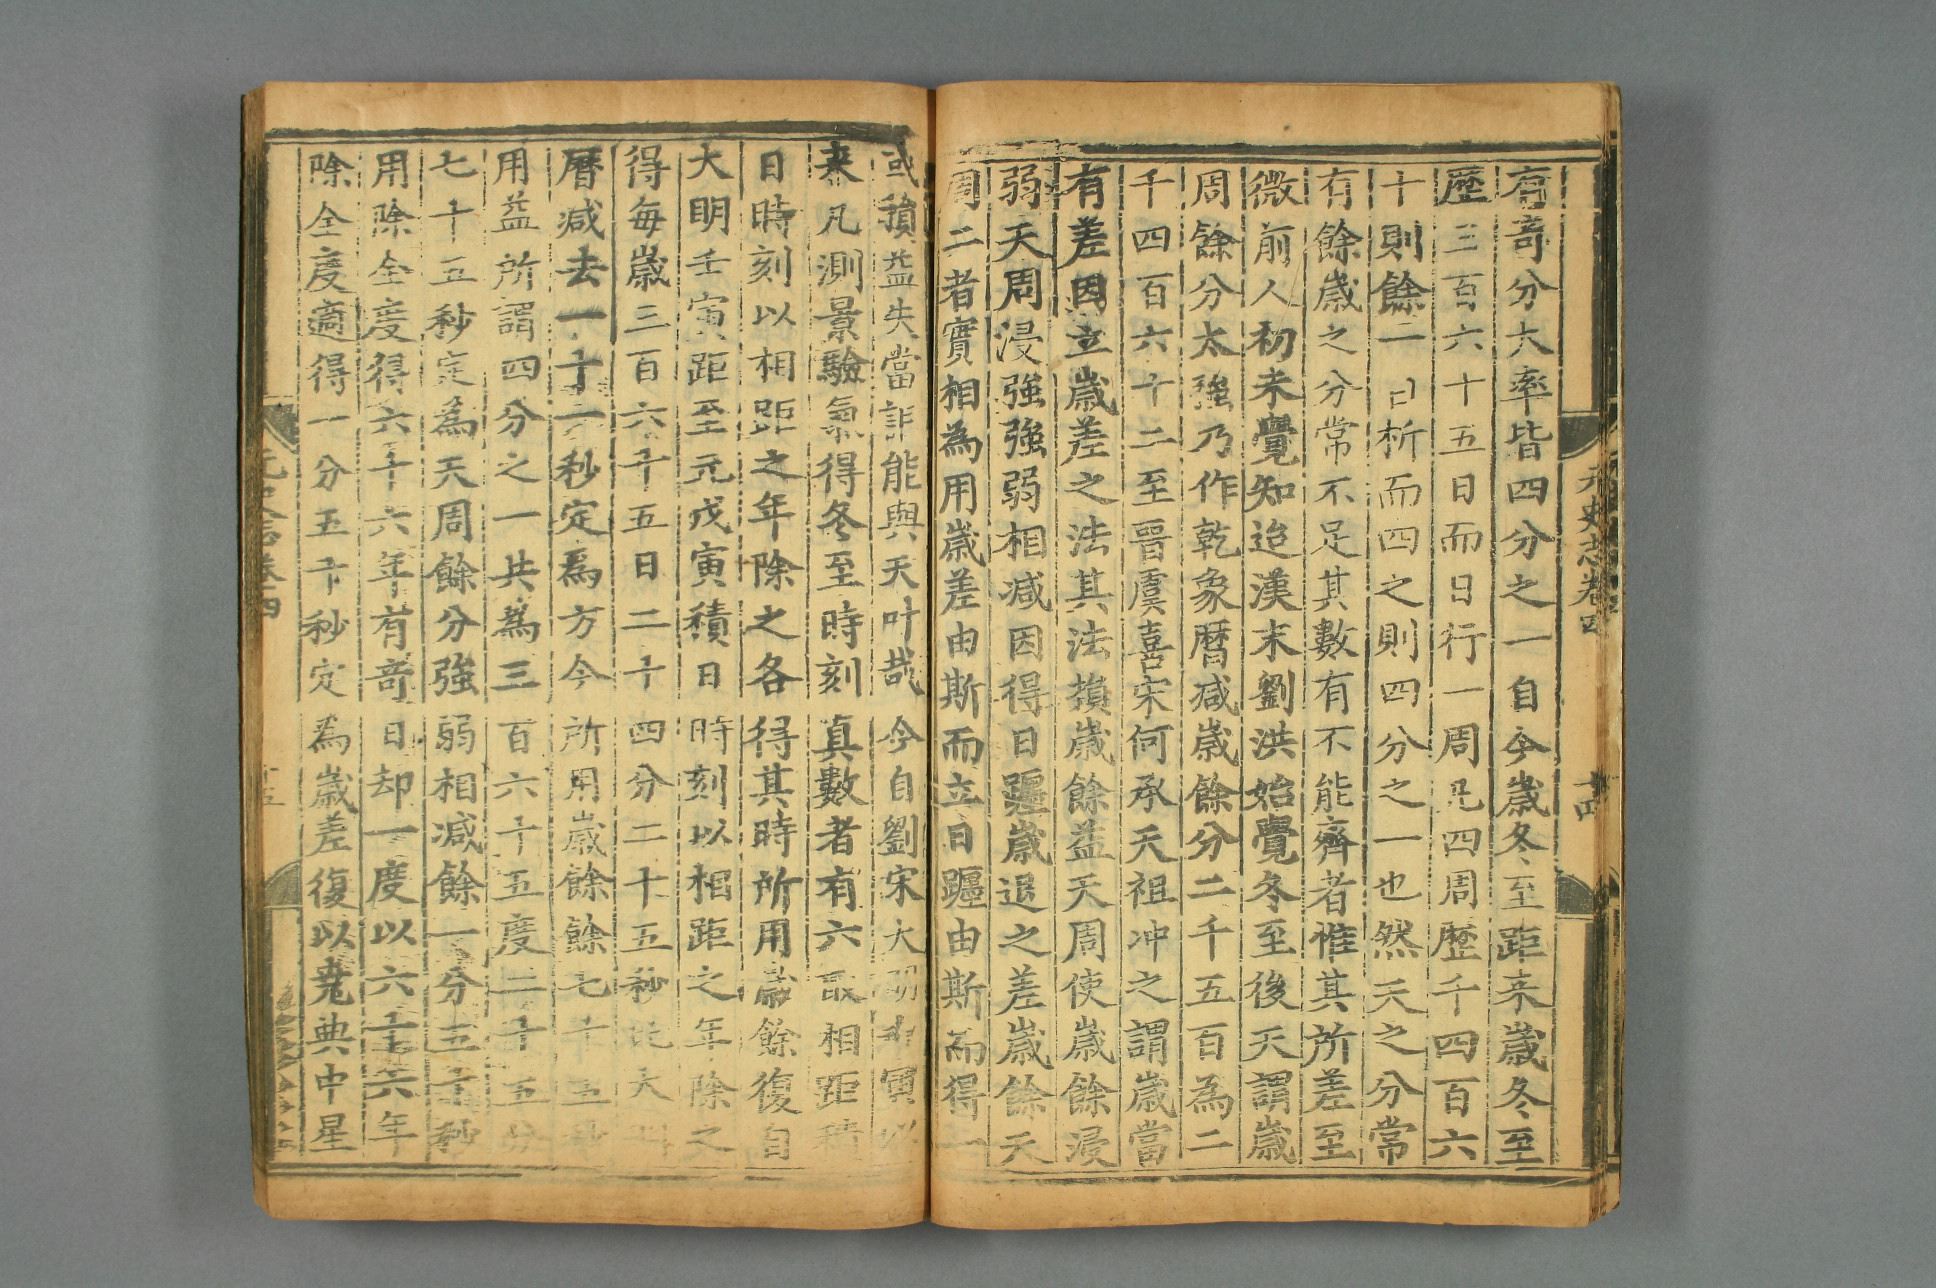 元史志卷四
十四
有竒分大率皆四分之一自今歳冬至距来歳冬至
歷三百六十五日而日行一周凡四周歷千四百六
十則餘一日析而四之則四分之一也然天之分常
有餘歳之分常不足其數有不能齊者惟其所差至
微前人初未覺知迨漢末劉洪始覺冬至後天謂歳
周餘分太強乃作乾象曆减歳餘分二千五百為二
千四百六十二至晋虞喜宋何承天祖冲之謂歳當
有差因立歳差之法其法損歳餘益天周使歳餘浸
弱天周浸強強弱相减因得日躔歳退之差歳餘天
周二者實相為用歳差由斯而立日躔由斯而得一
或損益失當詎能與天叶哉今自劉宋大明壬寅以
来凡測景驗氣得冬至時刻真數者有六取相距積
日時刻以相距之年除之各得其時所用歳餘復自
大明壬寅距至元戊寅積日時刻以相距之年除之
得每歳三百六十五日二十四分二十五秒比大明
曆减去一十一秒定為方今所用歳餘餘七十五秒
用益所謂四分之一共為三百六十五度二十五分
七十五秒定為天周餘分強弱相减餘一分五十秒
用除全度得六十六年有竒日却一度以六十六年
除全度適得一分五十秒定為歳差復以堯典中星
元史志卷四
十五